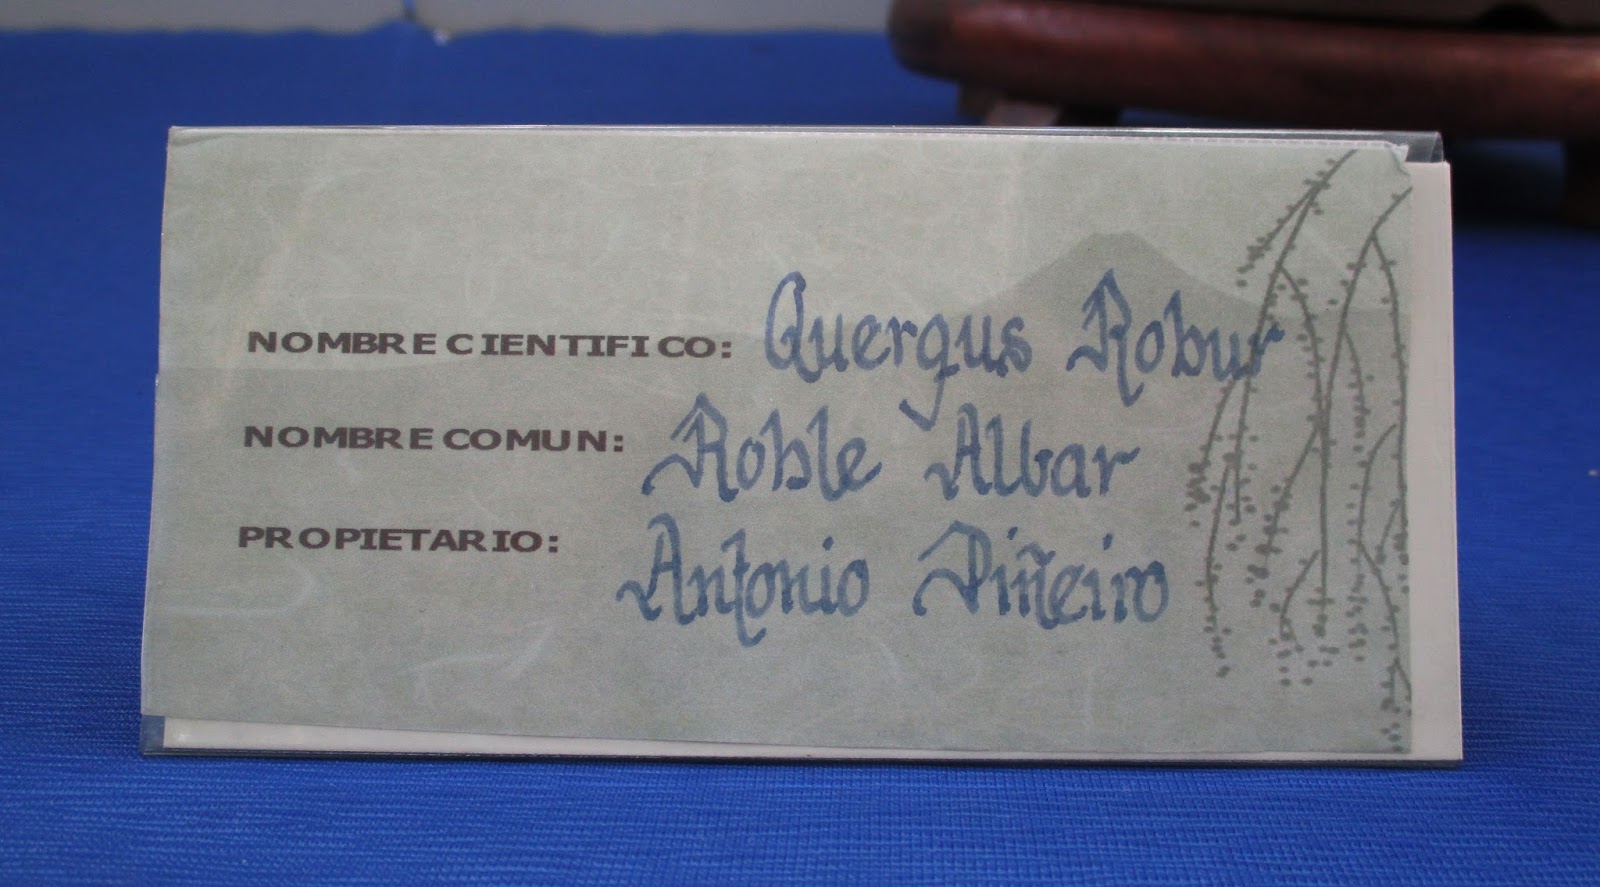 NOMBRE CIENTIFICO: Quergus Robur
NOMBRE COMUN: Roble Albar
PROPIETARIO: Antonio Piñeiro